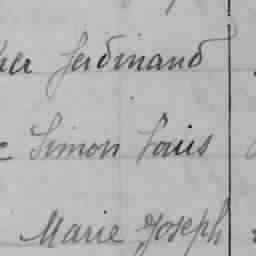 Ferdinand
Simon Louis
Marie Joseph